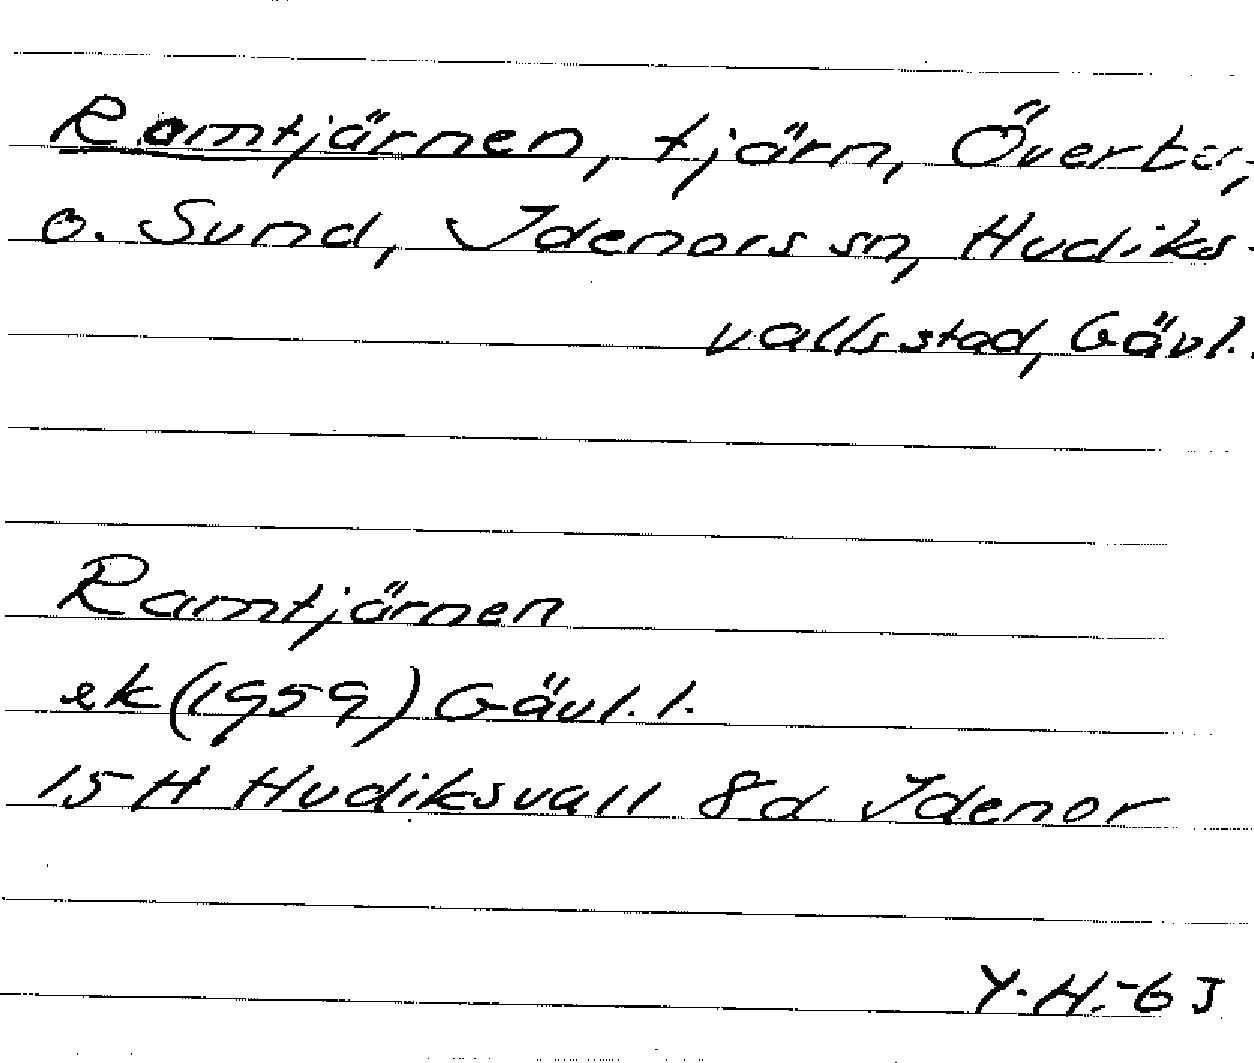 Ramtjärnen, tjärn, Överta,
o. Sund, Idenors sn, Hudiks-
vallsstad, Gävl.
Ramtjärnen
ek (1959) Gävl. l.
15 H Hudiksvall 8d Idenor
Y.H.-63